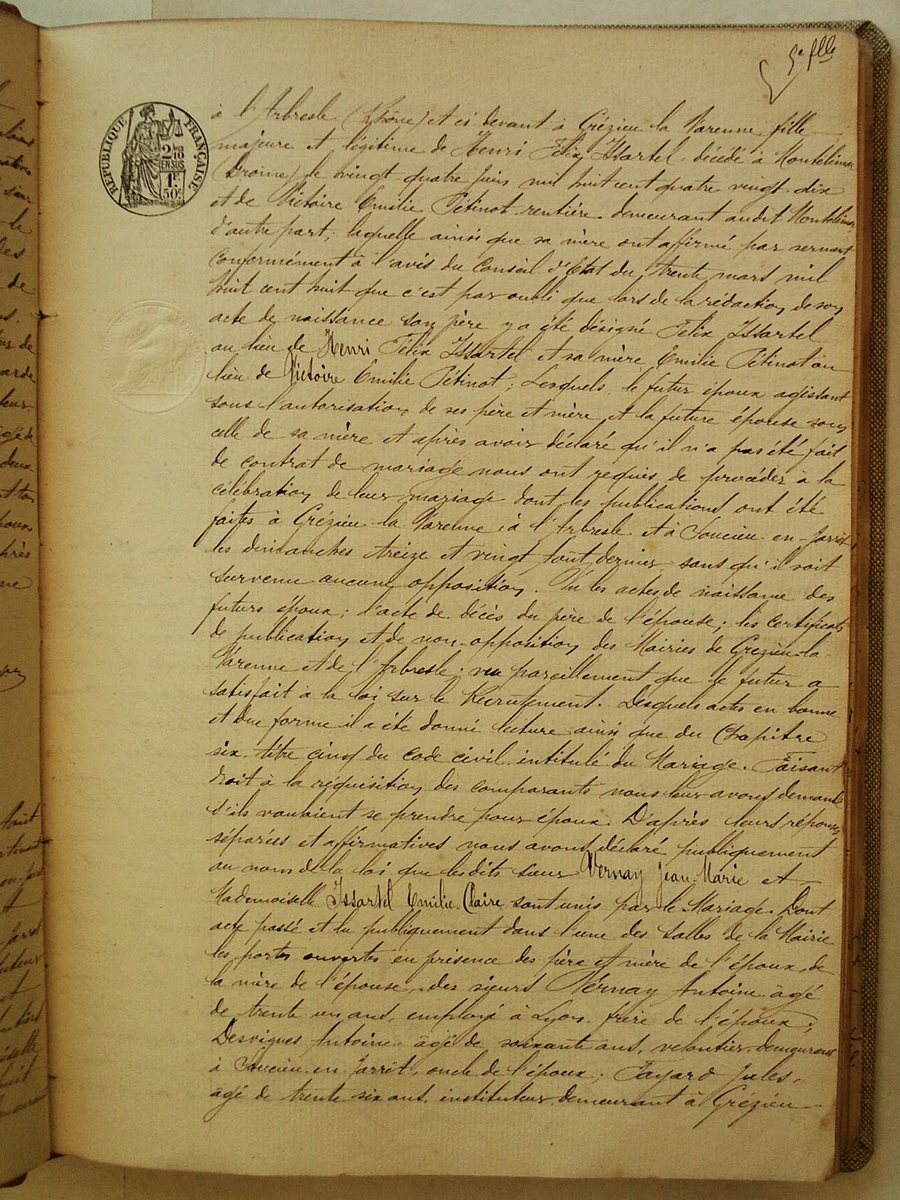 5e flle
RÉPUBLIQUE FRANÇAISE
2/10es EN SUS
1F 50c
à l'Arbresle (Rhône) et ci devant à Grézieu la Varenne fille
majeure et légitime de Henri Félix Issartel décédé à Montélimar
(Drome) le vingt quatre juin mil huit cent quatre vingt-dix
et de Victoire Emilie Pétinot rentière demeurant audit Montélimar
d'autre part; laquelle ainsi que sa mère ont affirmé par serment
conformément à l'avis du Conseil d'Etat du trente mars mil
huit cent huit que c'est par oubli que lors de la rédaction de son
acte de naissance son père y a été désigné Félix Issartel
au lieu de Henri Félix Issartel et sa mère Emilie Pétinot au
lieu de Victoire Emilie Pétinot; Lesquels, le futur époux agissant
sous l'autorisation de ses père et mère, et la future épouse sous
celle de sa mère et après avoir déclaré qu'il n'a pas été fait
de contrat de mariage nous ont requis de procéder à la
célébration de leur mariage dont les publications ont été
faites à Grézieu la Varenne, à l'Arbresle et à Soucieu-en-Jarret
les dimanches treize et vingt août dernier sans qu'il soit
survenu aucune opposition. Vu les actes de naissance des
futurs époux; l'acte de décès du père de l'épouse; les certificats
de publication et de non-opposition des Mairies de Grézieu-la-
Varenne et de l'Arbresle; vu pareillement que le futur a
satisfait à la loi sur le Recrutement. Desquels acts en bonne
et due forme il a été donné lecture ainsi que du Chapitre
six, titre cinq du code civil intitulé du Mariage. Faisant
droit à la réquisition des comparants nous leur avons demandé
s'ils voulaient se prendre pour époux. D'après leurs réponses
séparées et affirmatives nous avons déclaré publiquement
au nom de la loi que lesdits sieur Vernay Jean-Marie et
Mademoiselle Issartel Emilie-Claire sont unis par le Mariage. Dont
acte passé et lu publiquement dans l'une des salles de la Mairie
les portes ouvertes en présence des père et mère de l'époux, de
la mère de l'épouse, des sieurs Vernay Antoine âgé
de trente un ans, employé à Lyon frère de l'époux;
Desvignes Antoine âgé de soixante ans, veloutier, demeurant
à Soucieu en Jarret, oncle de l'époux; Fayard Jules,
âgé de trente six ans, instituteur demeurant à Grézieu